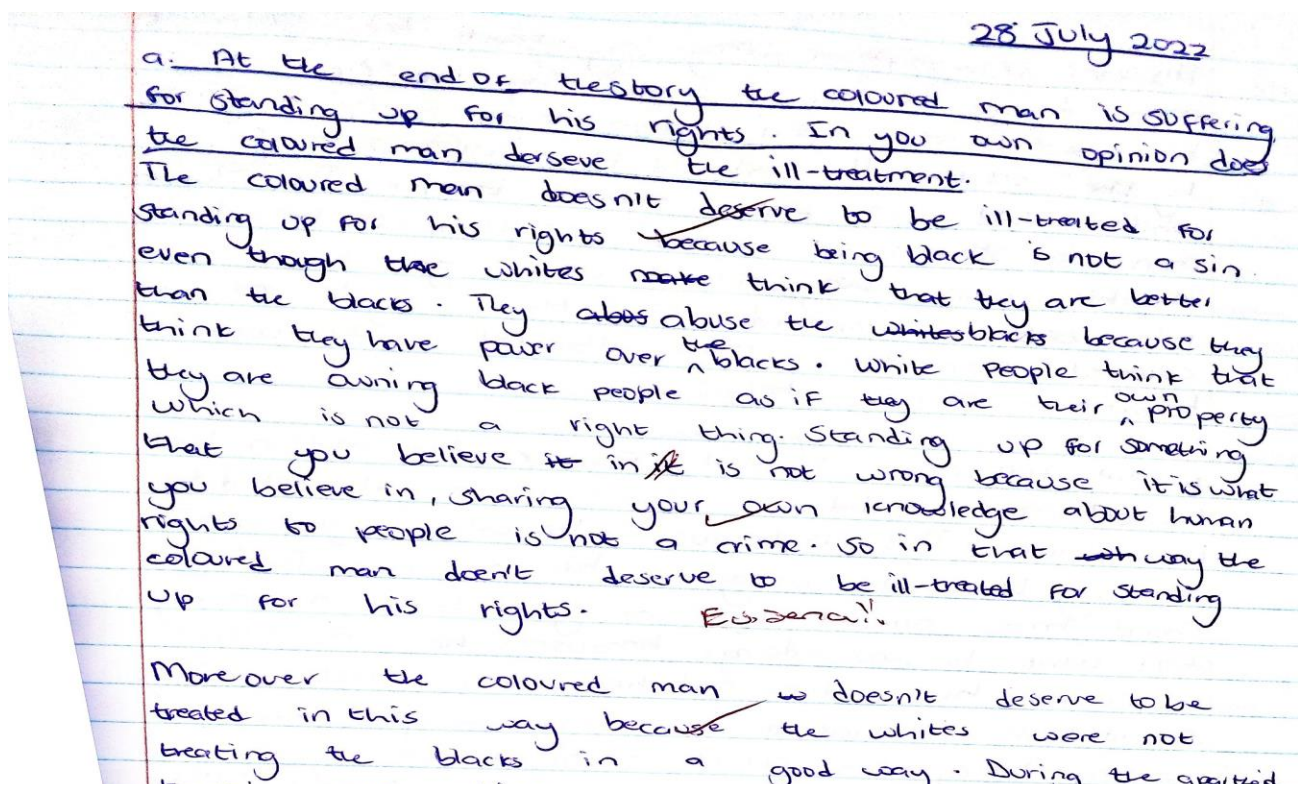 28 July 2022
a. At the end of the story the coloured man is suffering
for standing up for his rights. In you own opinion does
the coloured man derseve the ill-treatment.
The coloured man doesn't deserve to be ill-treated for
standing up for his rights because being black is not a sin
even though the whites make think that they are better
than the blacks. They abos abuse the whites blacks because they
think they have power over the blacks. White people think that
they are owning black people as if they are their own property
which is not a right thing. Standing up for something
that you believe it in it is not wrong because it is what
you believe in, sharing your own knowledge about human
rights to people is not a crime. So in that way the
coloured man doen't deserve to be ill-treated for standing
up for his rights.
Moreover the coloured man doesn't deserve to be
treated in this way because the whites were not
treating the blacks in a good way. During the